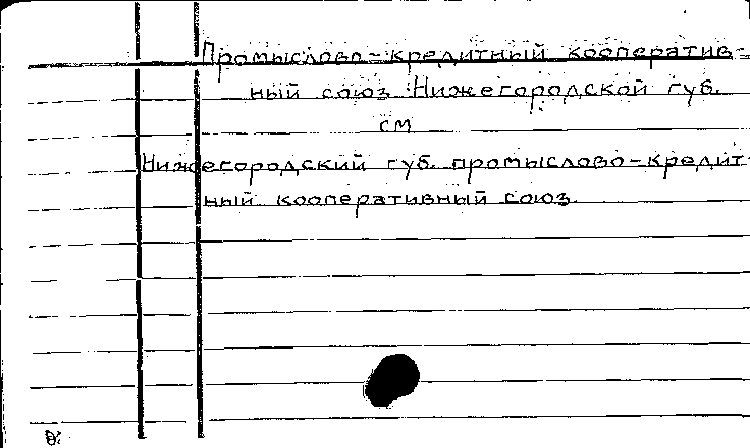 Промыслово-кредитный кооператив-
ный союз Нижегородской губ.
см
Нижегородский губ. промыслово-кредит
ный кооперативный союз